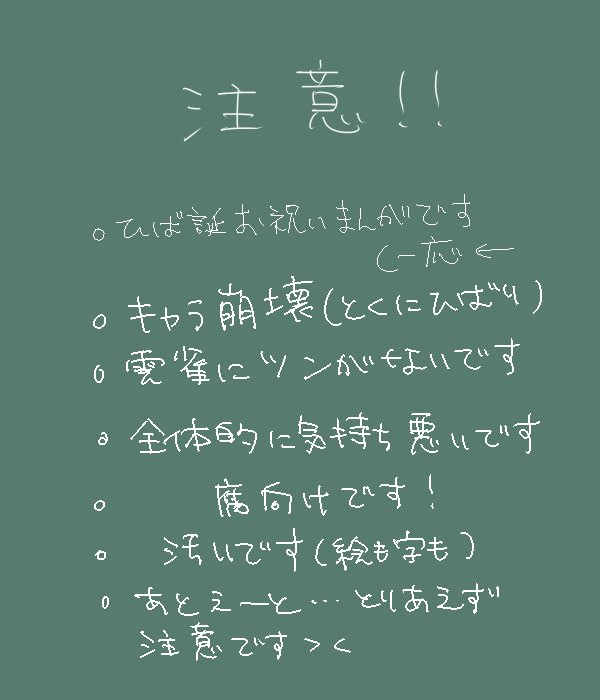 注意!!
○ひば誕お祝いまんがです
(一応←
○キャラ崩壊(とくにひばり)
○雲雀にツンがないです
○全体的に気持ち悪いです
○腐向けです!
○汚いです(絵も字も)
○あとえーと…とりあえず
注意です><